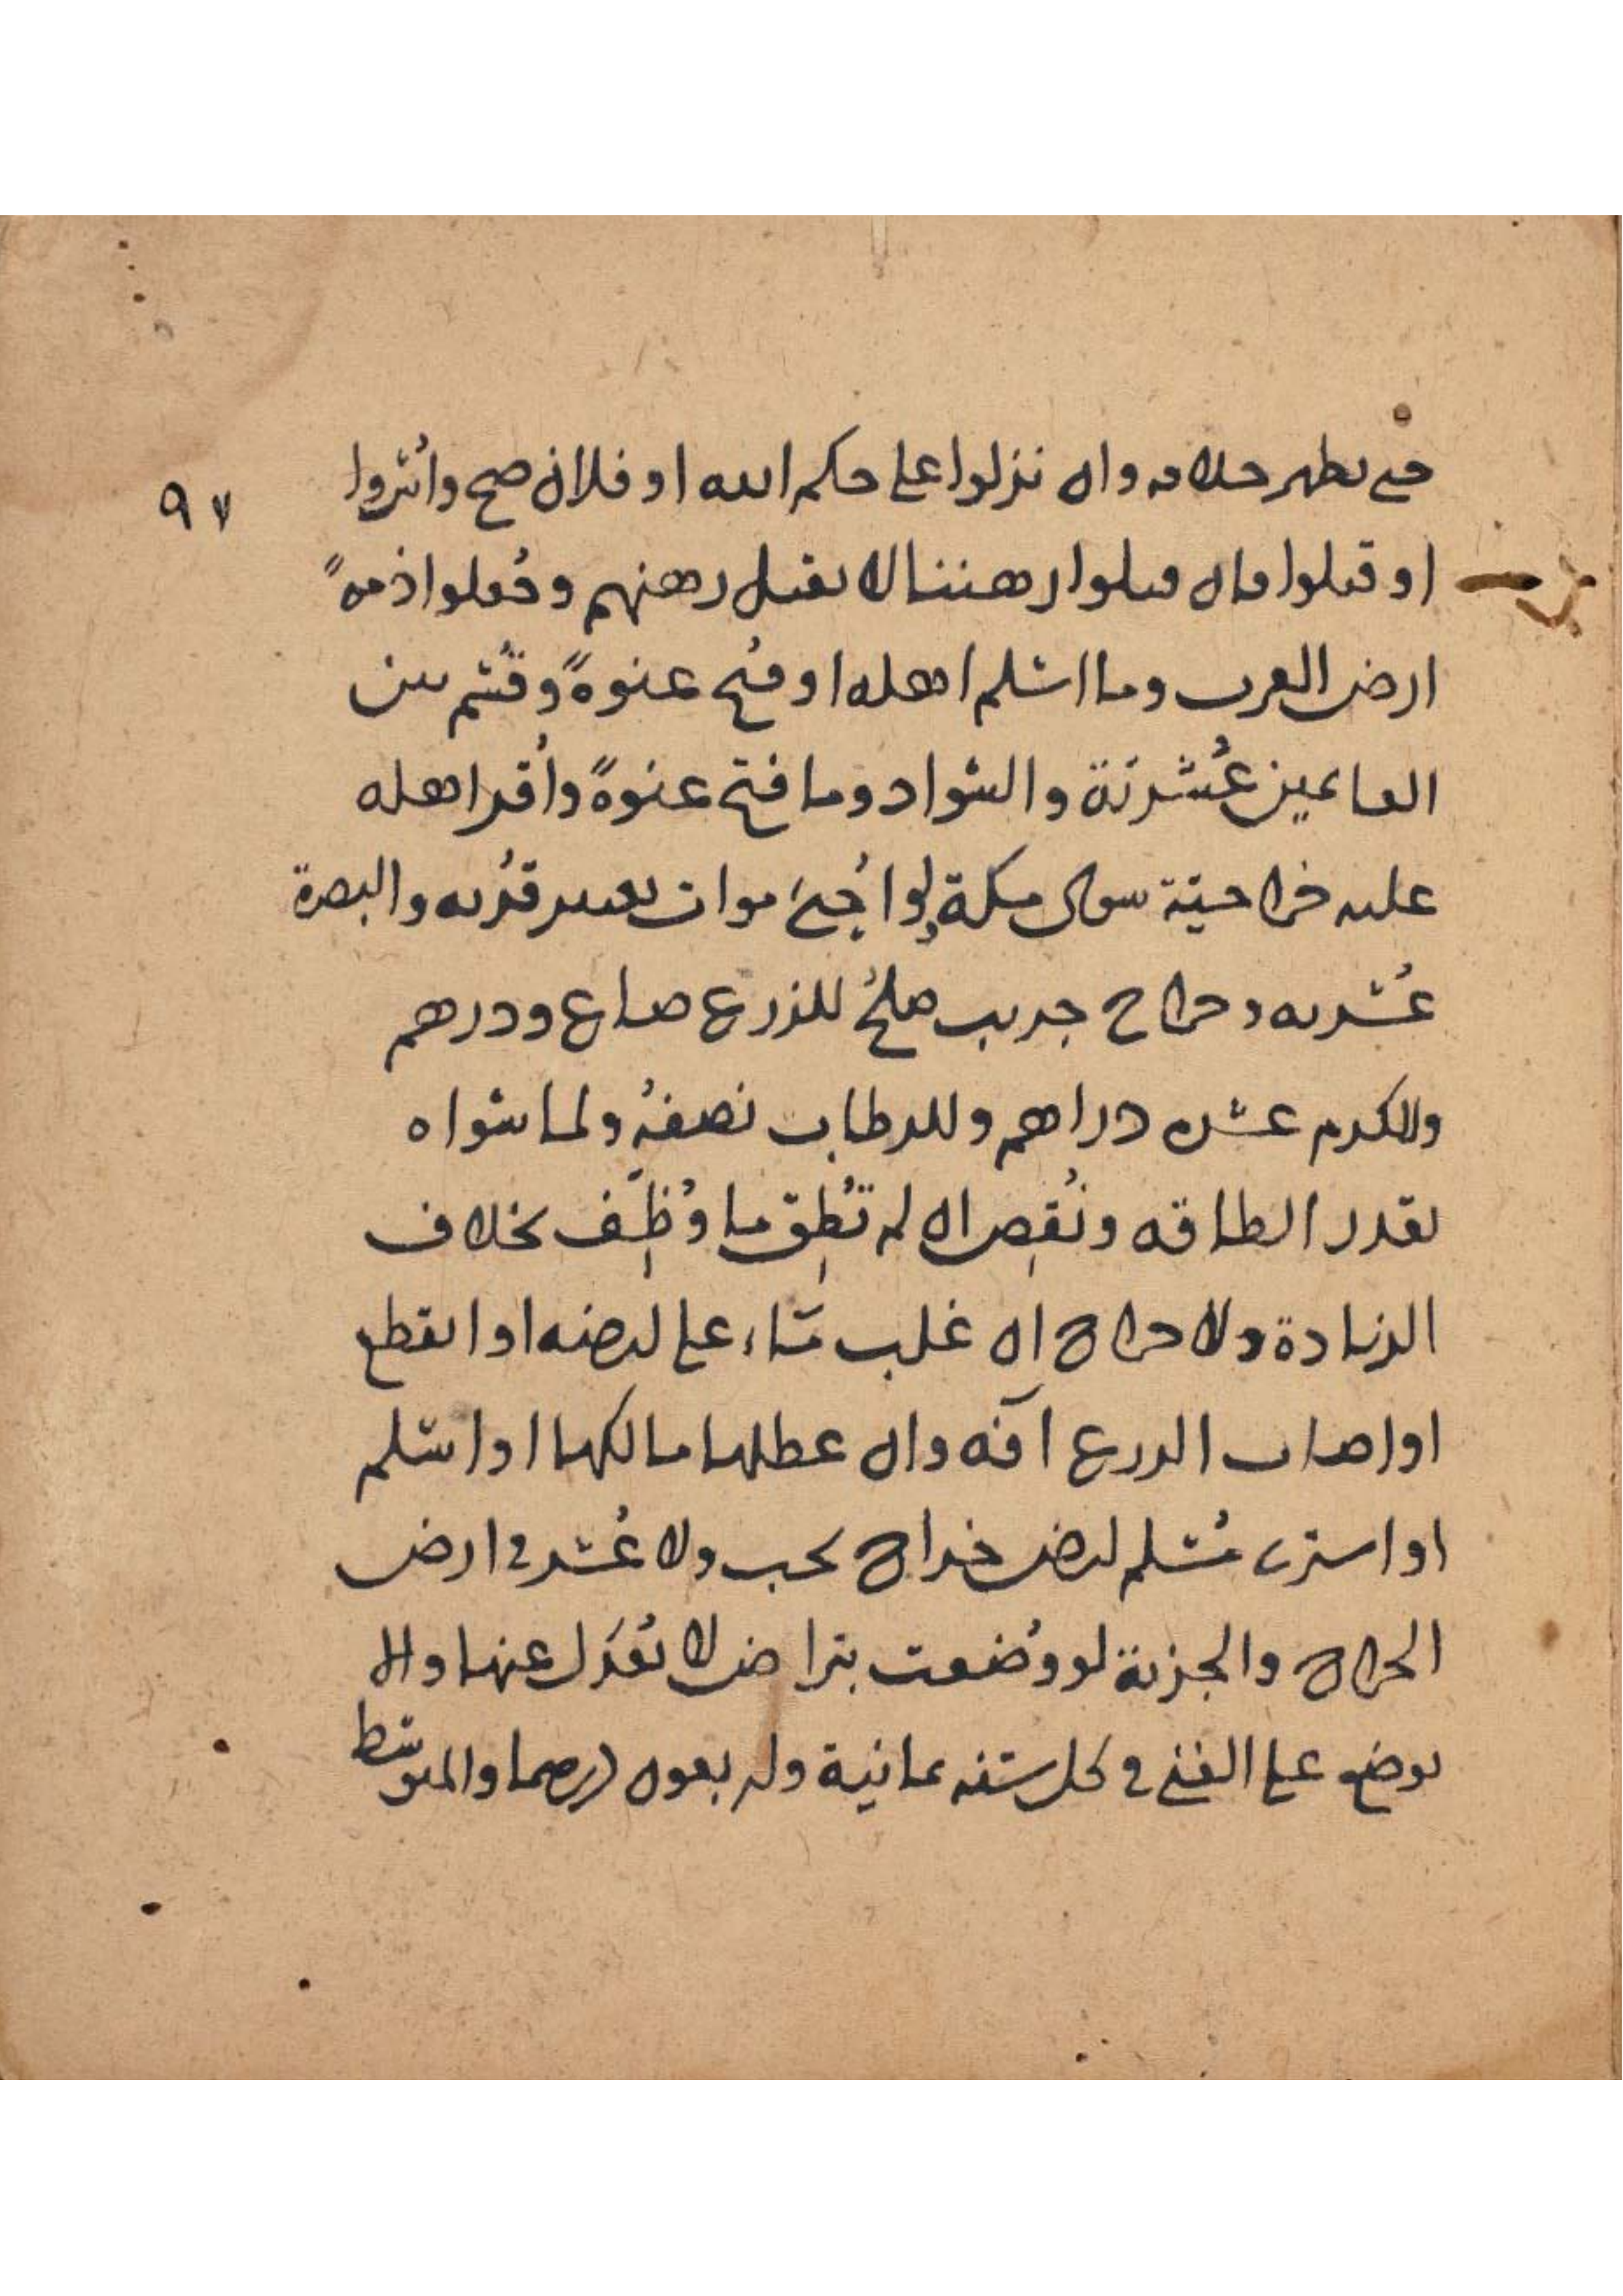 حتى يظهر خلافه وان نزلوا على حكم الله او فلان صح واسروا
٩٧
او قتلوا فان قتلوا رهننا لا نقتل رهنهم وجعلوا ذمةً
ارض العرب وما اسلم اهله او فتح عنوةً وقُسم بين
الغانمين عُشريّة والسواد وما فتح عنوةً واُقر اهله
عليه خراجيّة سوى مكة ولو اُحيى موات يعتبر قُربه والبصرة
عُشريه وخراج جريب صلح للزرع صاع ودرهم
وللكرم عشره دراهم وللرطاب نصفهُ ولما سواه
بقدر الطاقه ونُقِص ان لم تُطِق ما وُظِّف بخلاف
الزيادة ولا خراج ان غلب ماء على ارضه او انقطع
او اصاب الزرع آفه وان عطلها مالكها او اسلم
او اشترى مُسلم ارض خراج يجب ولا عُشر في ارض
الخراج والجزية لو وُضعت بتراض لا يُعدَل عنها والا
يوضع على الغني في كل سنه ثمانية واربعون درهما والمتوسط